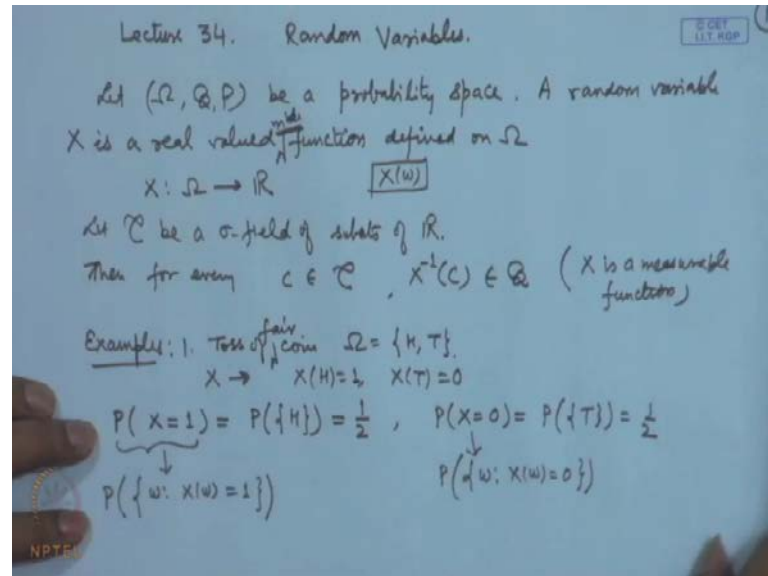 Lecture 34. Random Variables.
© CET
I.I.T. KGP
Let (Ω, 𝒬, P) be a probability space. A random variable
X is a real valued mble function defined on Ω
X: Ω → ℝ X(ω)
Let 𝒞 be a σ-field of subsets of ℝ.
Then for every C ∈ 𝒞, X⁻¹(C) ∈ 𝒬 (X is a measurable
function)
Examples: 1. Toss of fair coin Ω = {H, T}.
X → X(H)=1, X(T)=0
P(X=1) = P({H}) = 1/2, P(X=0) = P({T}) = 1/2
↓ ↓
P({ω: X(ω)=1}) P({ω: X(ω)=0})
NPTEL